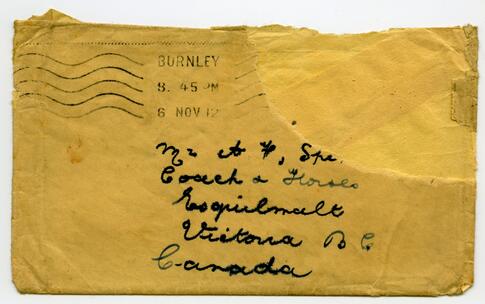 BURNLEY
8. 45 PM
6 NOV 12
Mr A F, Spe
Coach & Horses
Esquilmalt
Victoria B C
Canada